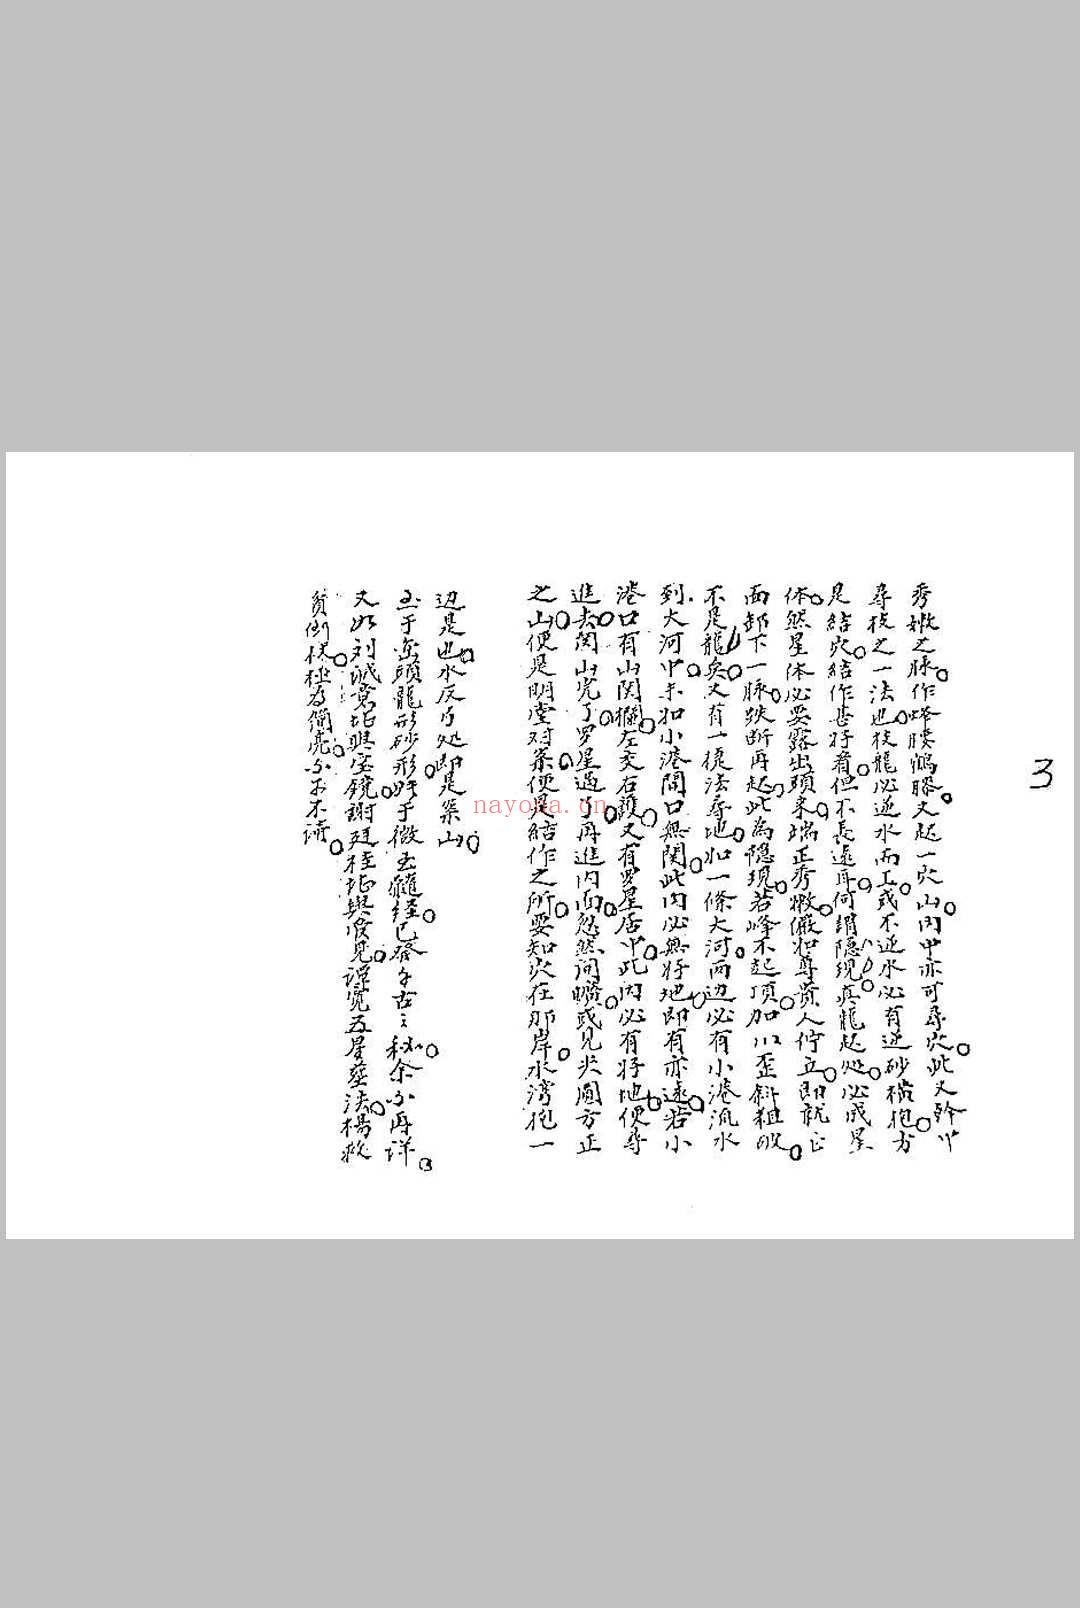 3
秀嫩之脉作蜂腰鶴膝又起一穴山内中亦可尋穴此又幹中
尋枝之一法也枝龍必逆水而上或不逆水必有逆砂横抱方
是結穴結作甚好看但不長遠耳何謂隐现真龍起处必成星
体然星体必要露出頭来端正秀嫩儼如尊貴人佇立即就正
面卸下一脉跌断再起此為隐現若峰不起頂加以歪斜粗破
不是龍矣又有一捷法尋地如一條大河两边必有小港流水
到大河中来如小港間口無関此内必無好地即有亦遠若小
港口有山関攔左交右護又有罗星居中此内必有好地便尋
進去関山完了罗星過了再進内面忽然间曠或见尖圓方正
之山便是明堂对案便是結作之所要知穴在那岸水湾抱一
边是也水反弓处即是案山
至于巒頭龍形砂形 于微玉髓经已發千古之秘余不再详
又如刘诚意 宝鏡謝廷柱 见谭宽五星葬法楊救
貧倒杖極为簡亮 不可不讀
nayona.cn